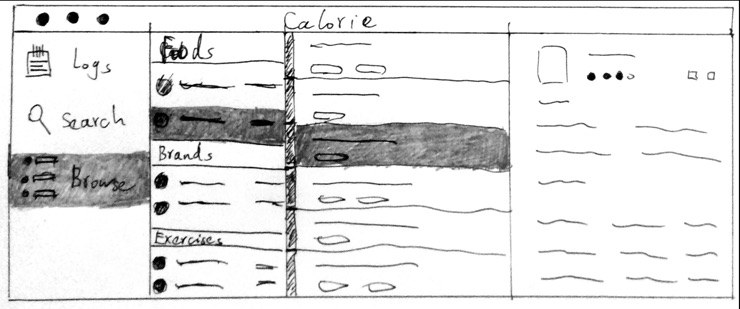 Calorie
Logs
Search
Browse
Foods
Brands
Exercises